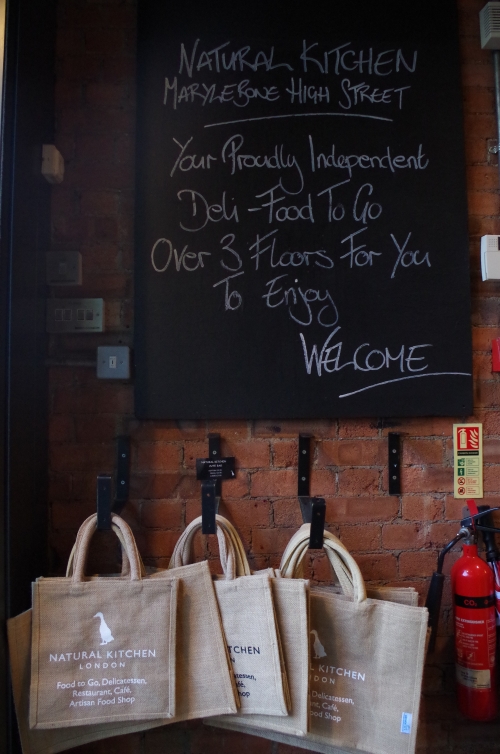 NATURAL KITCHEN
MARYLEBONE HIGH STREET
Your Proudly Independent
Deli - Food To Go
Over 3 Floors For You
To Enjoy
WELCOME
NATURAL KITCHEN
LONDON
Food to Go, Delicatessen,
Restaurant, Café,
Artisan Food Shop
KITCHEN
catessen,
Food Shop
KITCHEN
Delicatessen,
Café,
Food Shop
CO2